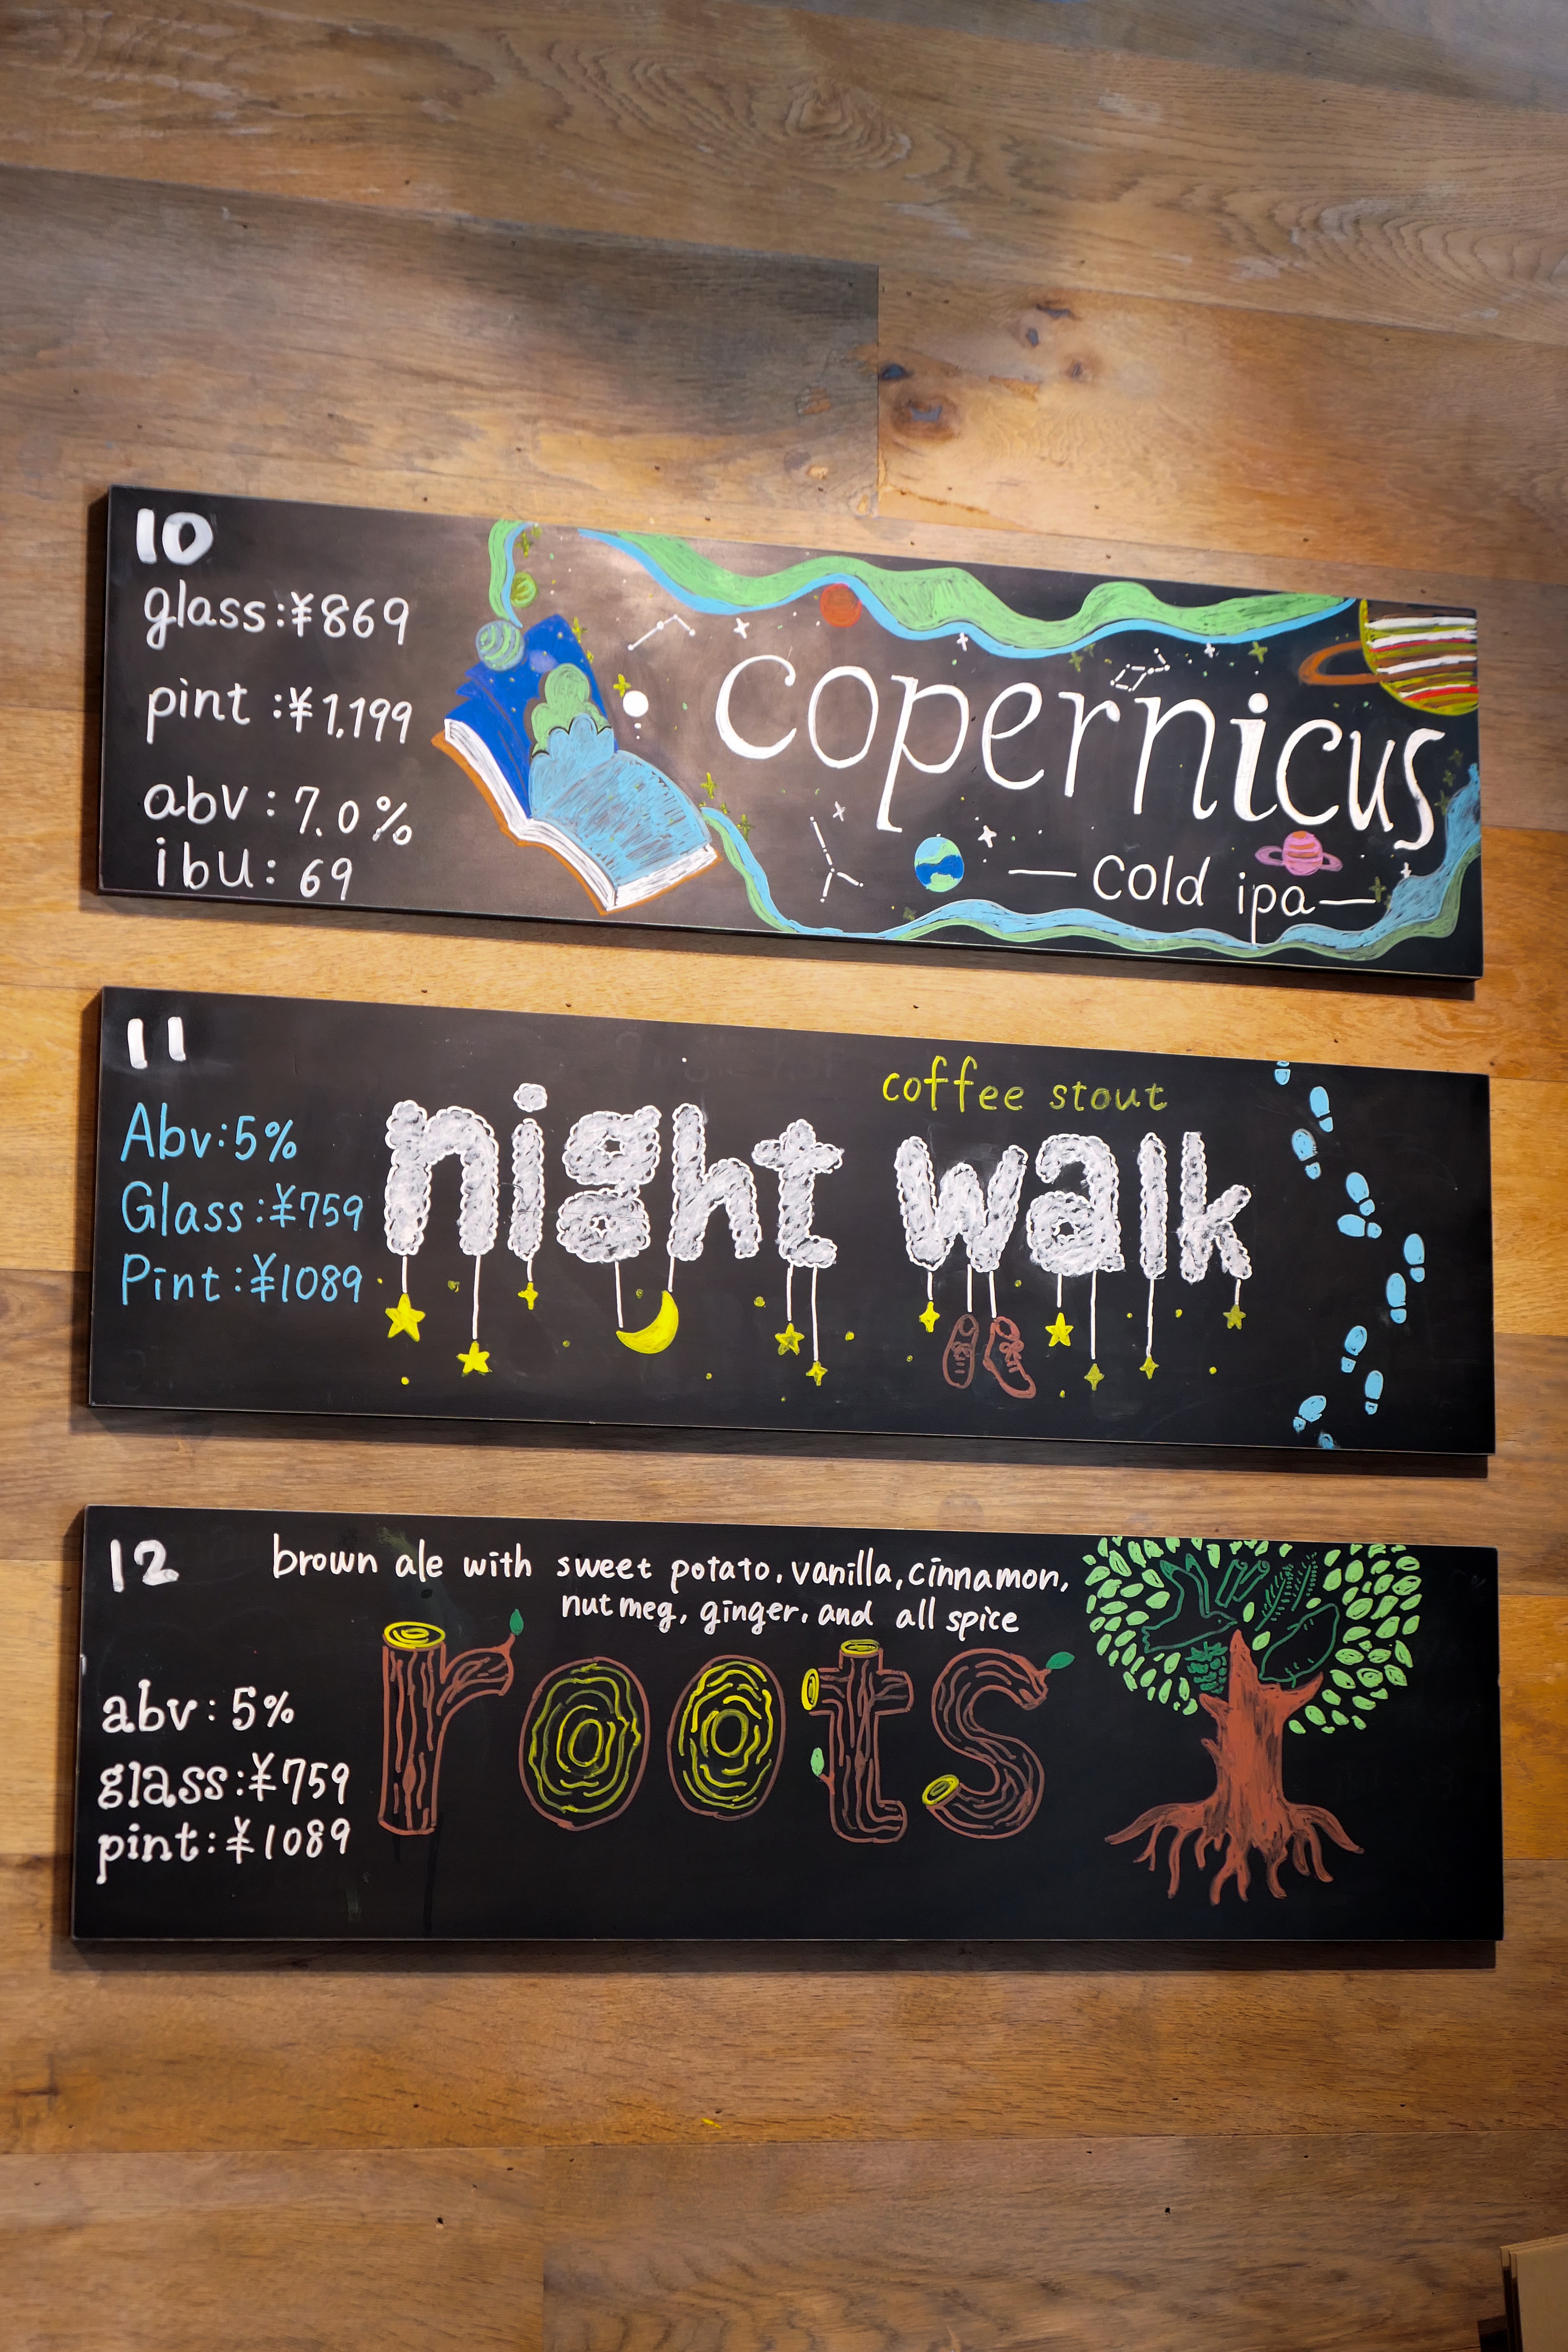 10
glass:¥869
pint:¥1,199
abv:7.0%
ibu:69
copernicus
—cold ipa—
11
Abv:5%
Glass:¥759
Pint:¥1089
coffee stout
night walk
12
brown ale with sweet potato, vanilla, cinnamon,
nutmeg, ginger, and all spice
abv:5%
glass:¥759
pint:¥1089
roots